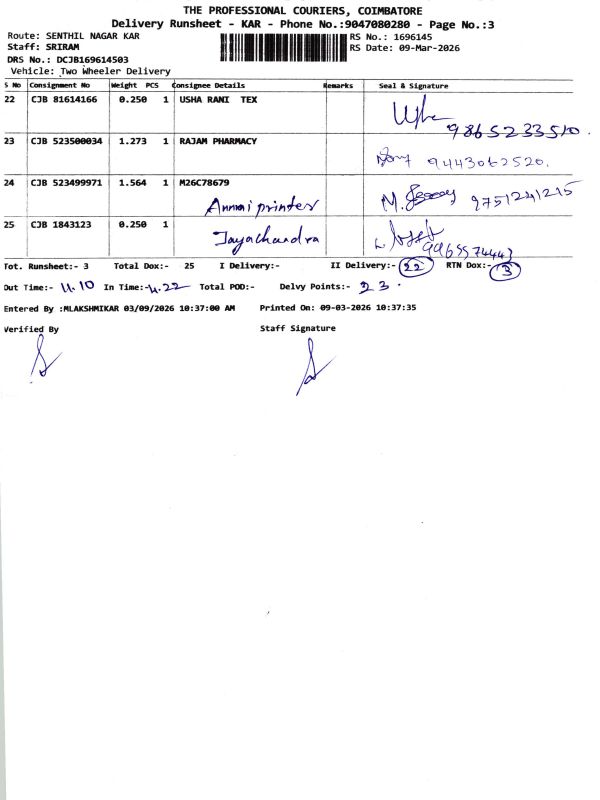 THE PROFESSIONAL COURIERS, COIMBATORE
Delivery Runsheet - KAR - Phone No.:9047080280 - Page No.:3
Route: SENTHIL NAGAR KAR RS No.: 1696145
Staff: SRIRAM RS Date: 09-Mar-2026
DRS No.: DCJB169614503
Vehicle: Two Wheeler Delivery
S No Consignment No Weight PCS Consignee Details Remarks Seal & Signature
22 CJB 81614166 0.250 1 USHA RANI TEX
9865233510.
23 CJB 523500034 1.273 1 RAJAM PHARMACY
9443062520.
24 CJB 523499971 1.564 1 M26C78679
Annai printer M. 9751241215
25 CJB 1843123 0.250 1
Jayachandra 9965574443
Tot. Runsheet:- 3 Total Dox:- 25 I Delivery:- II Delivery:- 22 RTN Dox:- 3
Out Time:- 11.10 In Time:- 4.22 Total POD:- Delvy Points:- 23.
Entered By :MLAKSHMIKAR 03/09/2026 10:37:00 AM Printed On: 09-03-2026 10:37:35
Verified By Staff Signature